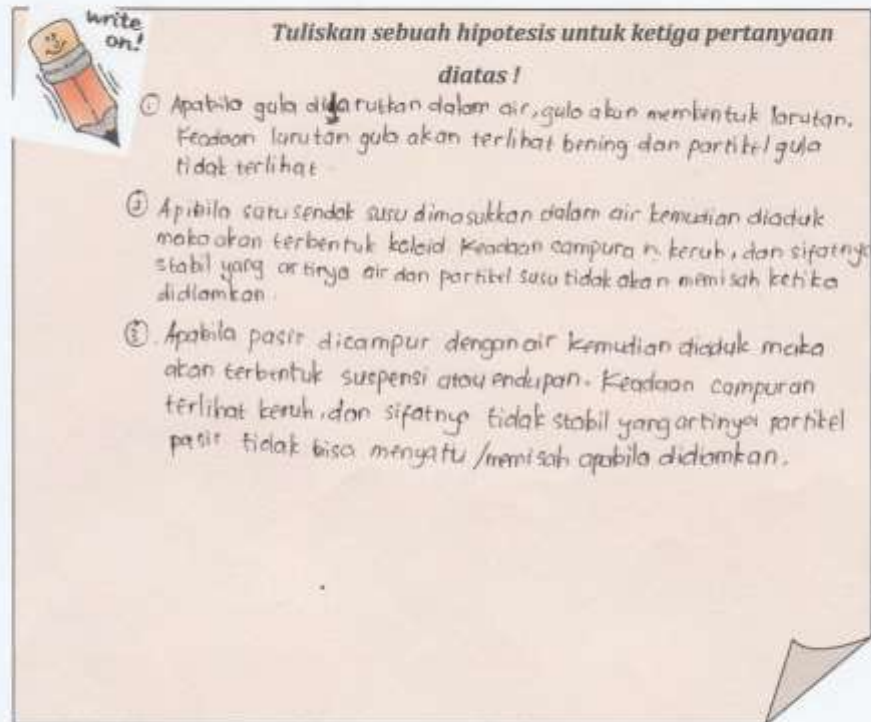 write on!
Tuliskan sebuah hipotesis untuk ketiga pertanyaan
diatas !
① Apabila gula dilarutkan dalam air, gula akan membentuk larutan.
Keadaan larutan gula akan terlihat bening dan partikel gula
tidak terlihat
② Apibila satu sendok susu dimasukkan dalam air kemudian diaduk
maka akan terbentuk koloid Keadaan campuran keruh, dan sifatnya
stabil yang artinya air dan partikel susu tidak akan memisah ketika
didiamkan.
③. Apabila pasir dicampur dengan air kemudian diaduk maka
akan terbentuk suspensi atau endapan. Keadaan campuran
terlihat keruh, dan sifatnya tidak stabil yang artinya partikel
pasir tidak bisa menyatu /memisah apabila didiamkan.